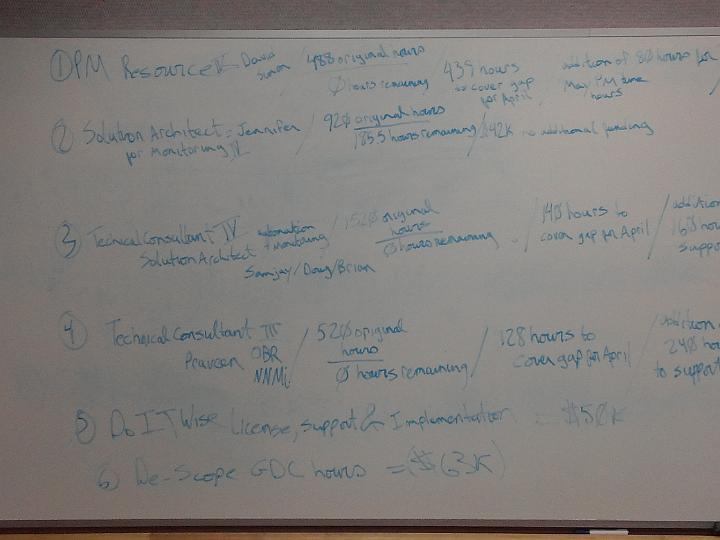 ① PM Resource IV - David Simon / 488 original hours / 0 hours remaining / 439 hours to cover gap for April, addition of 80 hours for May PM time hours
② Solution Architect - Jennifer for Monitoring IV / 920 original hours / 185.5 hours remaining / $42K no additional funding
③ Technical Consultant IV automation + monitoring Solution Architect Sanjay/Doug/Brian / 1520 original hours / 0 hours remaining / 140 hours to cover gap for April / addition 160 hou support
④ Technical Consultant III Praveen OBR NNMi / 520 original hours / 0 hours remaining / 128 hours to cover gap for April / addition 240 ho to support
⑤ Do IT Wise License, Support & Implementation = $50K
6) De-Scope GDC hours = ($63K)